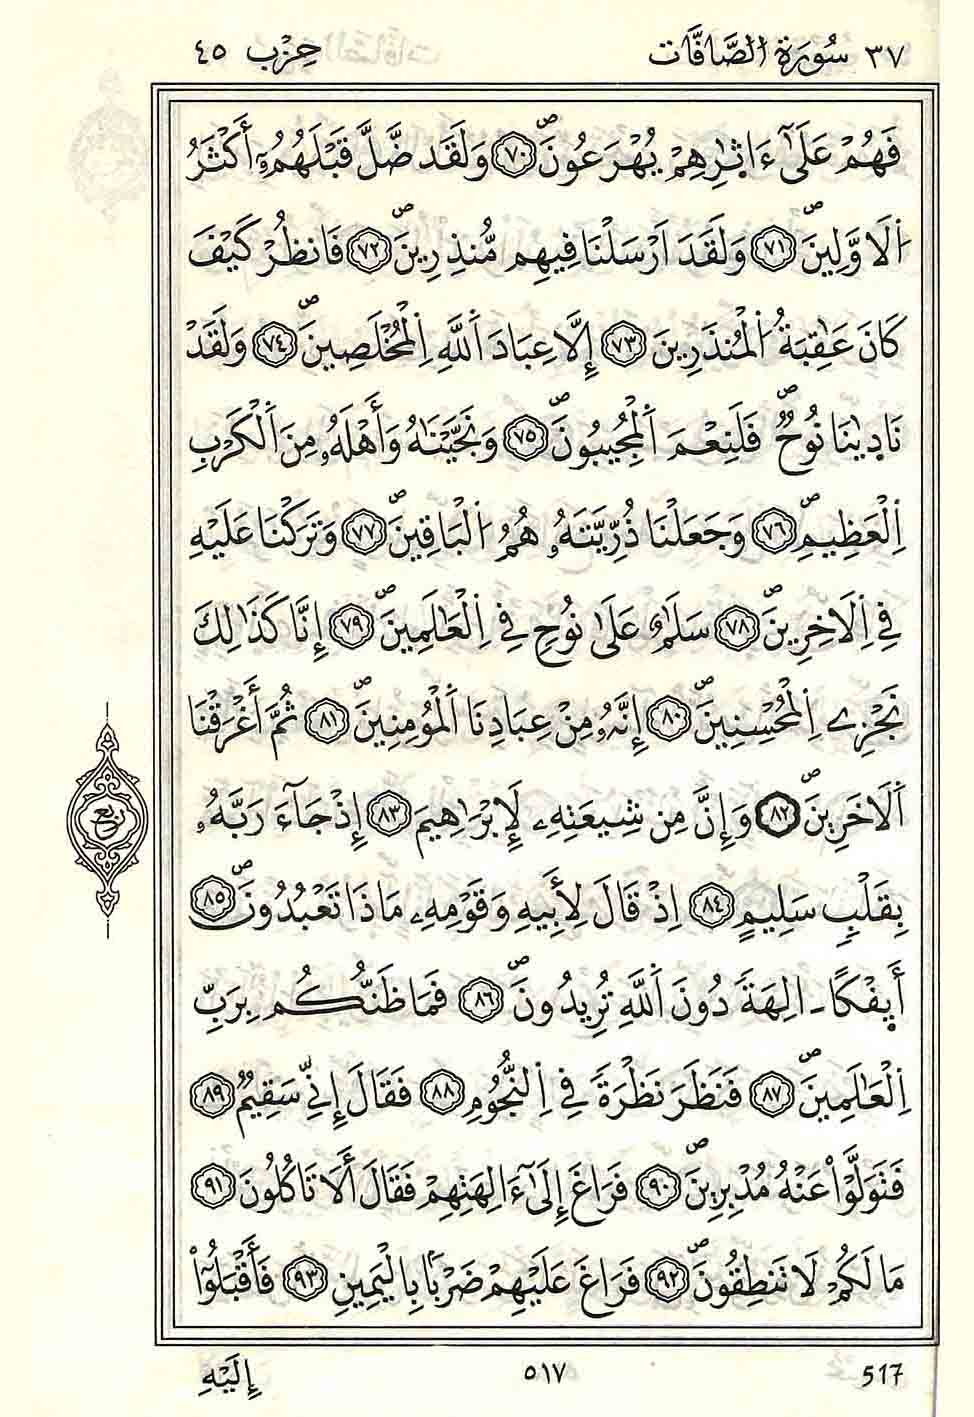 ٣٧ سُورَةُ الصَّافَّات حِزْب ٤٥
فَهُمْ عَلَىٰٓ ءَاثٰ۪رِهِمْ يُهْرَعُونَۖ ٧٠ وَلَقَد ضَّلَّ قَبْلَهُمُۥٓ أَكْثَرُ
اُ۬لَاوَّلِينَۖ ٧١ وَلَقَدَ اَرْسَلْنَا فِيهِم مُّنذِرِينَۖ ٧٢ فَانظُرْ كَيْفَ
كَانَ عَٰقِبَةُ اُ۬لْمُنذَرِينَ ٧٣ إِلَّا عِبَادَ اَ۬للَّهِ اِ۬لْمُخْلَصِينَۖ ٧٤ وَلَقَدْ
نَاد۪يٰنَا نُوحٞۖ فَلَنِعْمَ اَ۬لْمُجِيبُونَۖ ٧٥ وَنَجَّيْنَٰهُ وَأَهْلَهُۥ مِنَ اَ۬لْكَرْبِ
اِ۬لْعَظِيمِۖ ٧٦ وَجَعَلْنَا ذُرِّيَّتَهُۥ هُمُ اُ۬لْبَاقِينَۖ ٧٧ وَتَرَكْنَا عَلَيْهِ
فِے اِ۬لَاخِرِينَۖ ٧٨ سَلَٰمٌ عَلَىٰ نُوحٖ فِے اِ۬لْعَٰلَمِينَۖ ٧٩ إِنَّا كَذَٰلِكَ
نَجْزِے اِ۬لْمُحْسِنِينَۖ ٨٠ إِنَّهُۥ مِنْ عِبَادِنَا اَ۬لْمُؤْمِنِينَۖ ٨١ ثُمَّ أَغْرَقْنَا
اَ۬لَاخَرِينَۖ ٨٢ وَإِنَّ مِن شِيعَتِهِۦ لَإِبْرَٰهِيمَ ٨٣ إِذْ جَآءَ رَبَّهُۥ
بِقَلْبٖ سَلِيمٍ ٨٤ اِذْ قَالَ لِأَبِيهِ وَقَوْمِهِۦ مَاذَا تَعْبُدُونَۖ ٨٥
أَئِفْكًا اٰلِهَةٗ دُونَ اَ۬للَّهِ تُرِيدُونَۖ ٨٦ فَمَا ظَنُّكُم بِرَبِّ
اِ۬لْعَٰلَمِينَۖ ٨٧ فَنَظَرَ نَظْرَةٗ فِے اِ۬لنُّجُومِ ٨٨ فَقَالَ إِنِّے سَقِيمٞ ٨٩
فَتَوَلَّوْاْ عَنْهُ مُدْبِرِينَۖ ٩٠ فَرَاغَ إِلَىٰٓ ءَالِهَتِهِمْ فَقَالَ أَلَا تَاكُلُونَ ٩١
مَا لَكُمْ لَا تَنطِقُونَۖ ٩٢ فَرَاغَ عَلَيْهِمْ ضَرْباَۢ بِالْيَمِينِ ٩٣ فَأَقْبَلُوٓاْ
ربع
إِلَيْهِ ٥١٧ 517